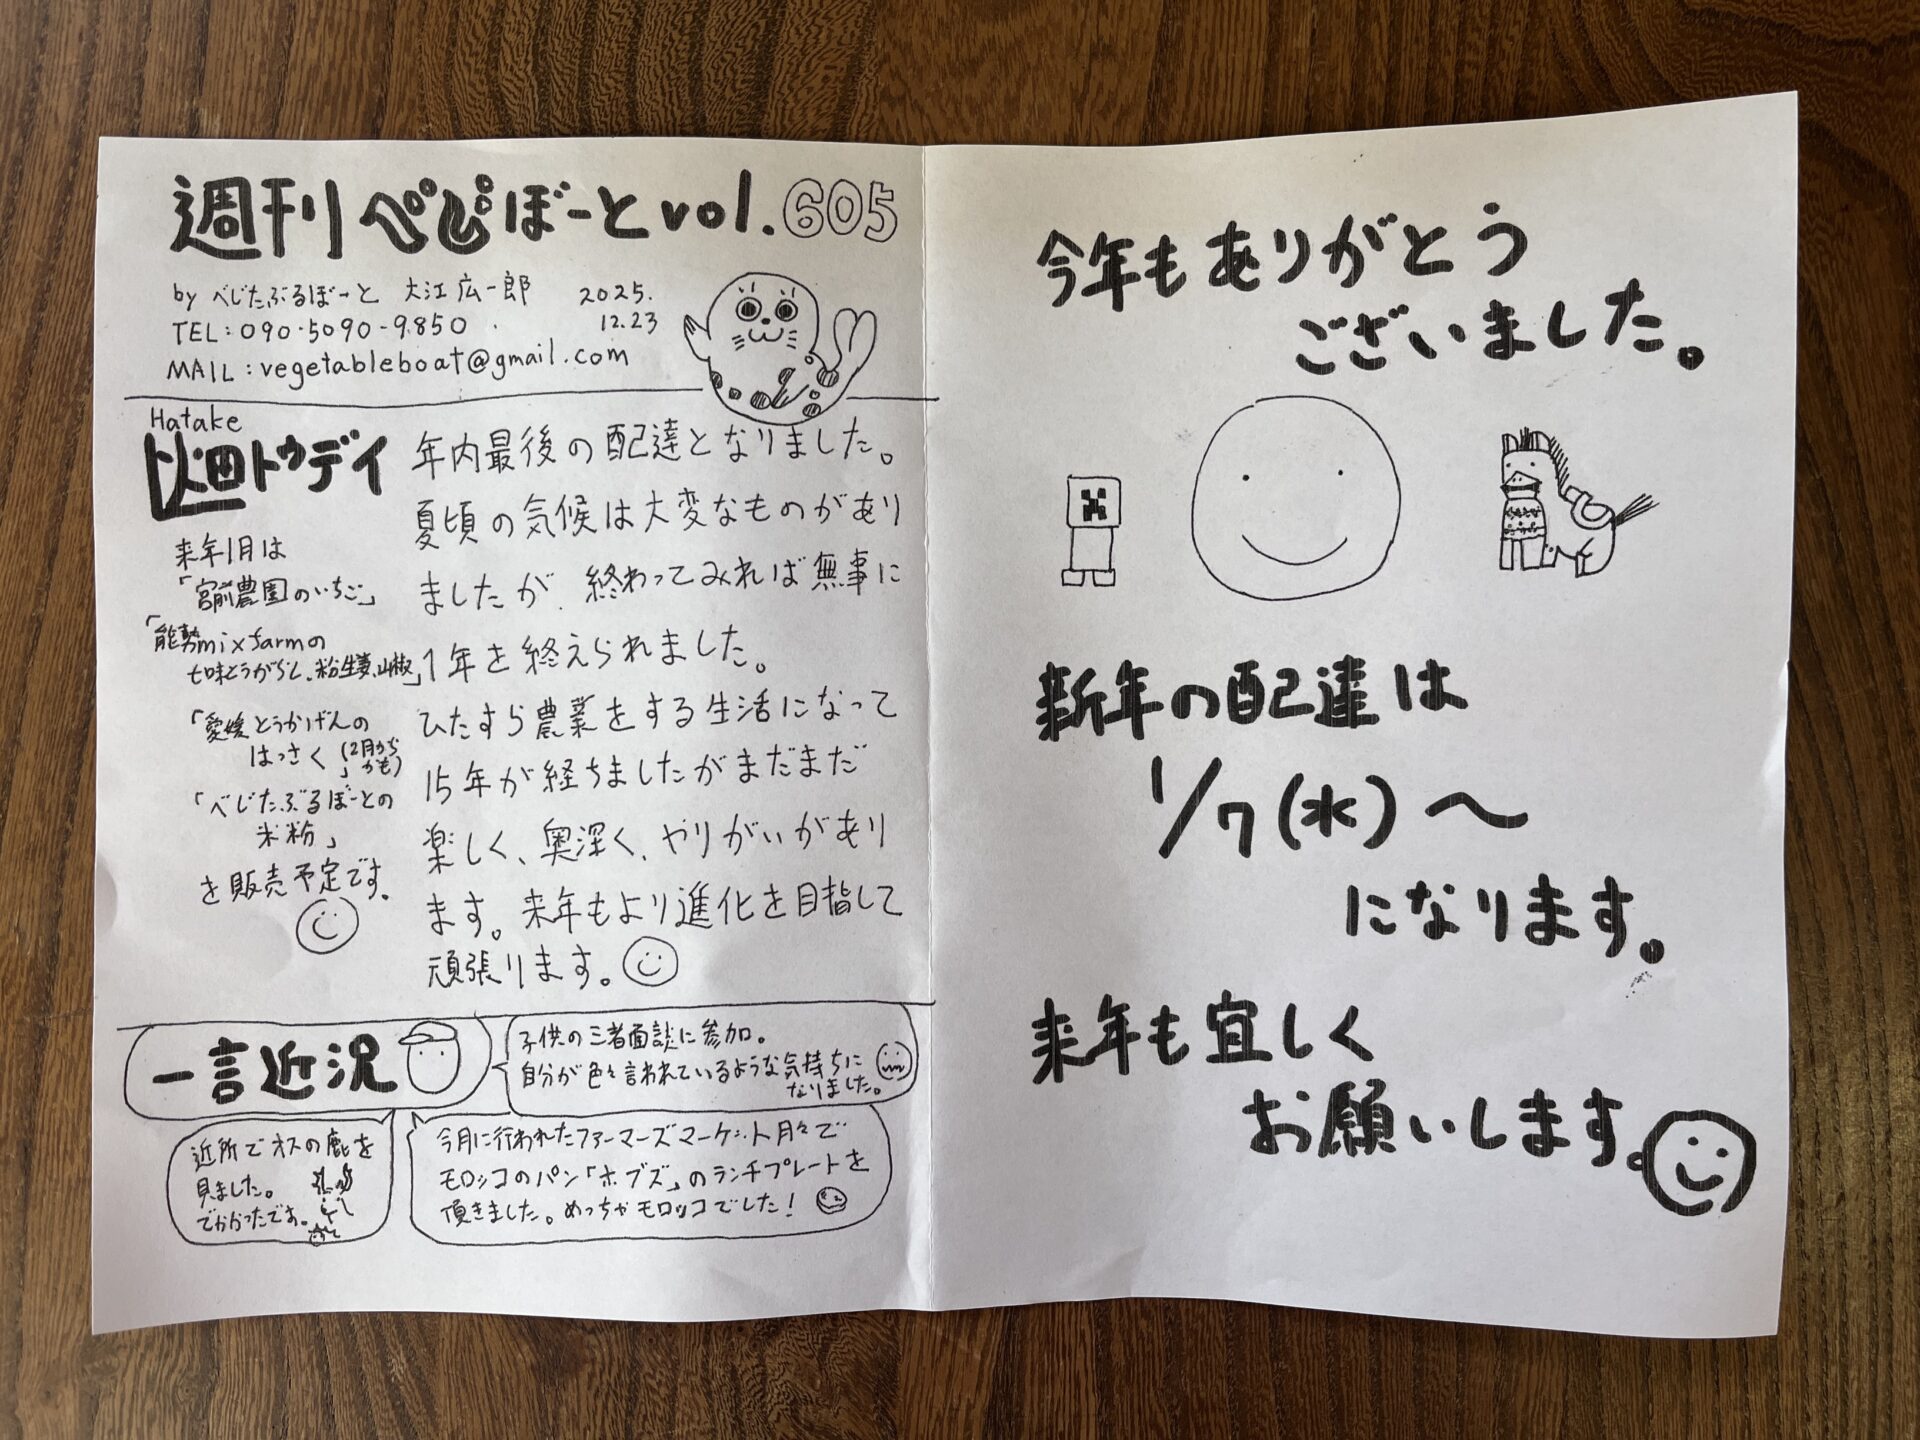 週刊 べじぼーと vol.605
by べじたぶるぼーと 大江広一郎 2025.
12.23
TEL:090-5090-9850
MAIL:vegetableboat@gmail.com
Hatake
畑トゥデイ
来年1月は
「宮前農園のいちご」
「能勢mixfarmの
七味とうがらし、粉生姜、山椒」
「愛媛とうかげんの
はっさく」(2月からかも)
「べじたぶるぼーとの
米粉」
を販売予定です。
年内最後の配達となりました。
夏頃の気候は大変なものがあり
ましたが、終わってみれば無事に
1年を終えられました。
ひたすら農業をする生活になって
15年が経ちましたがまだまだ
楽しく、奥深く、やりがいがあり
ます。来年もより進化を目指して
頑張ります。
一言近況
子供の三者面談に参加。
自分が色々言われているような気持ちに
なりました。
近所でオスの鹿を
見ました。
でかかったです。
今月に行われたファーマーズマーケット月々で
モロッコのパン「ホブズ」のランチプレートを
頂きました。めっちゃモロッコでした!
今年もありがとう
ございました。
新年の配達は
1/7(水)〜
になります。
来年も宜しく
お願いします。